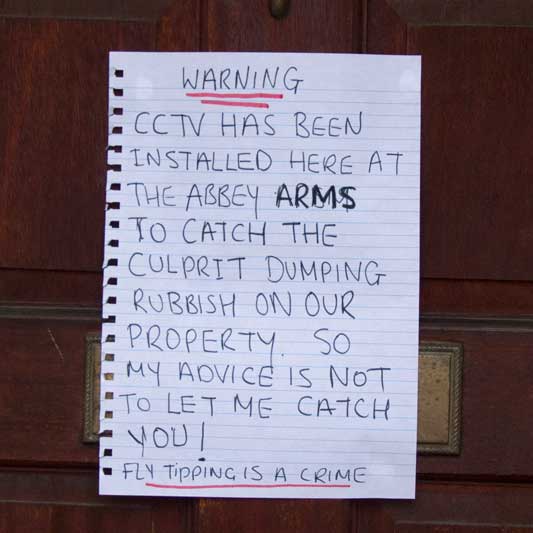 WARNING
CCTV HAS BEEN
INSTALLED HERE AT
THE ABBEY ARMS
TO CATCH THE
CULPRIT DUMPING
RUBBISH ON OUR
PROPERTY. SO
MY ADVICE IS NOT
TO LET ME CATCH
YOU!
FLY TIPPING IS A CRIME